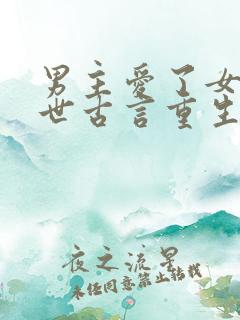 男主愛了女
世古言重生
夜之流星
未经同意禁止转载